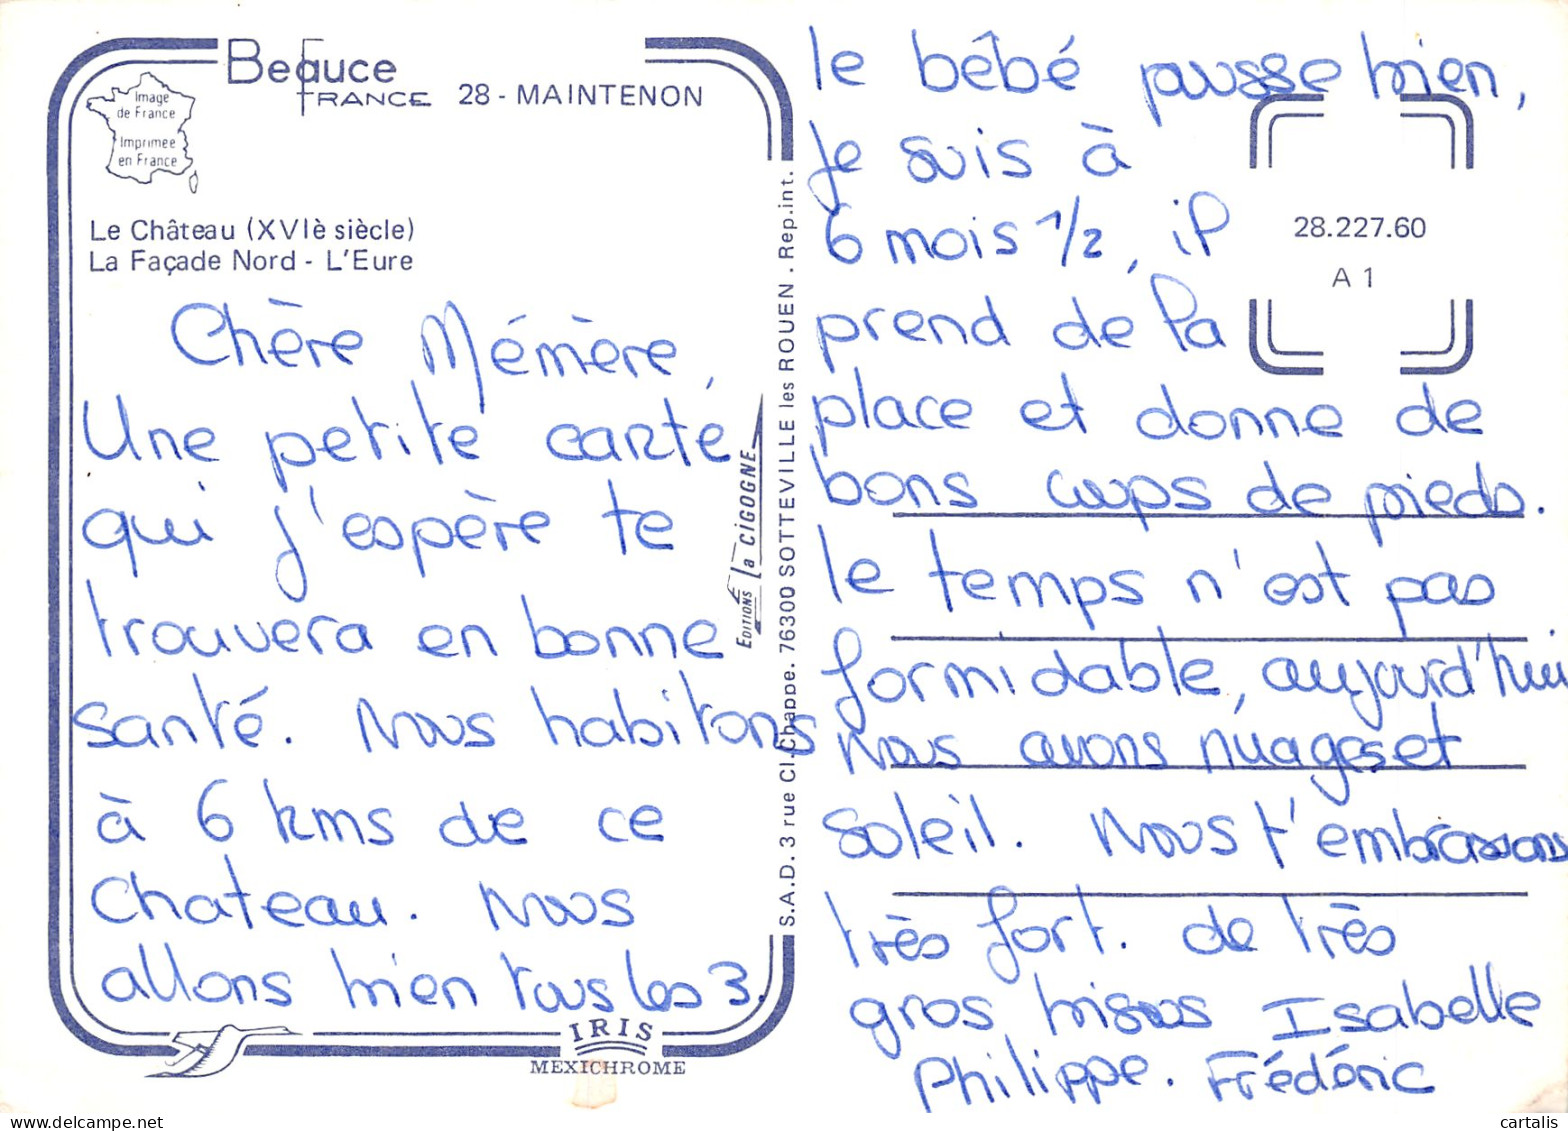 Beauce
FRANCE 28 - MAINTENON
Image
de France
Imprimée
en France
Le Château (XVIè siècle)
La Façade Nord - L'Eure
Chère Mémère,
Une petite carte
qui j'espère te
trouvera en bonne
santé. Nous habitons
à 6 kms de ce
Chateau. Nous
allons bien tous les 3.
IRIS
MEXICHROME
EDITIONS la CIGOGNE
S.A.D. 3 rue Cl. Chappe. 76300 SOTTEVILLE les ROUEN . Rep.int.
28.227.60
A 1
le bébé pousse bien,
je suis à
6 mois 1/2, il
prend de la
place et donne de
bons coups de pieds.
le temps n'est pas
formidable, aujourd'hui
nous avons nuages et
soleil. Nous t'embrassons
très fort. de très
gros bisous Isabelle
Philippe. Frédéric
cartalis